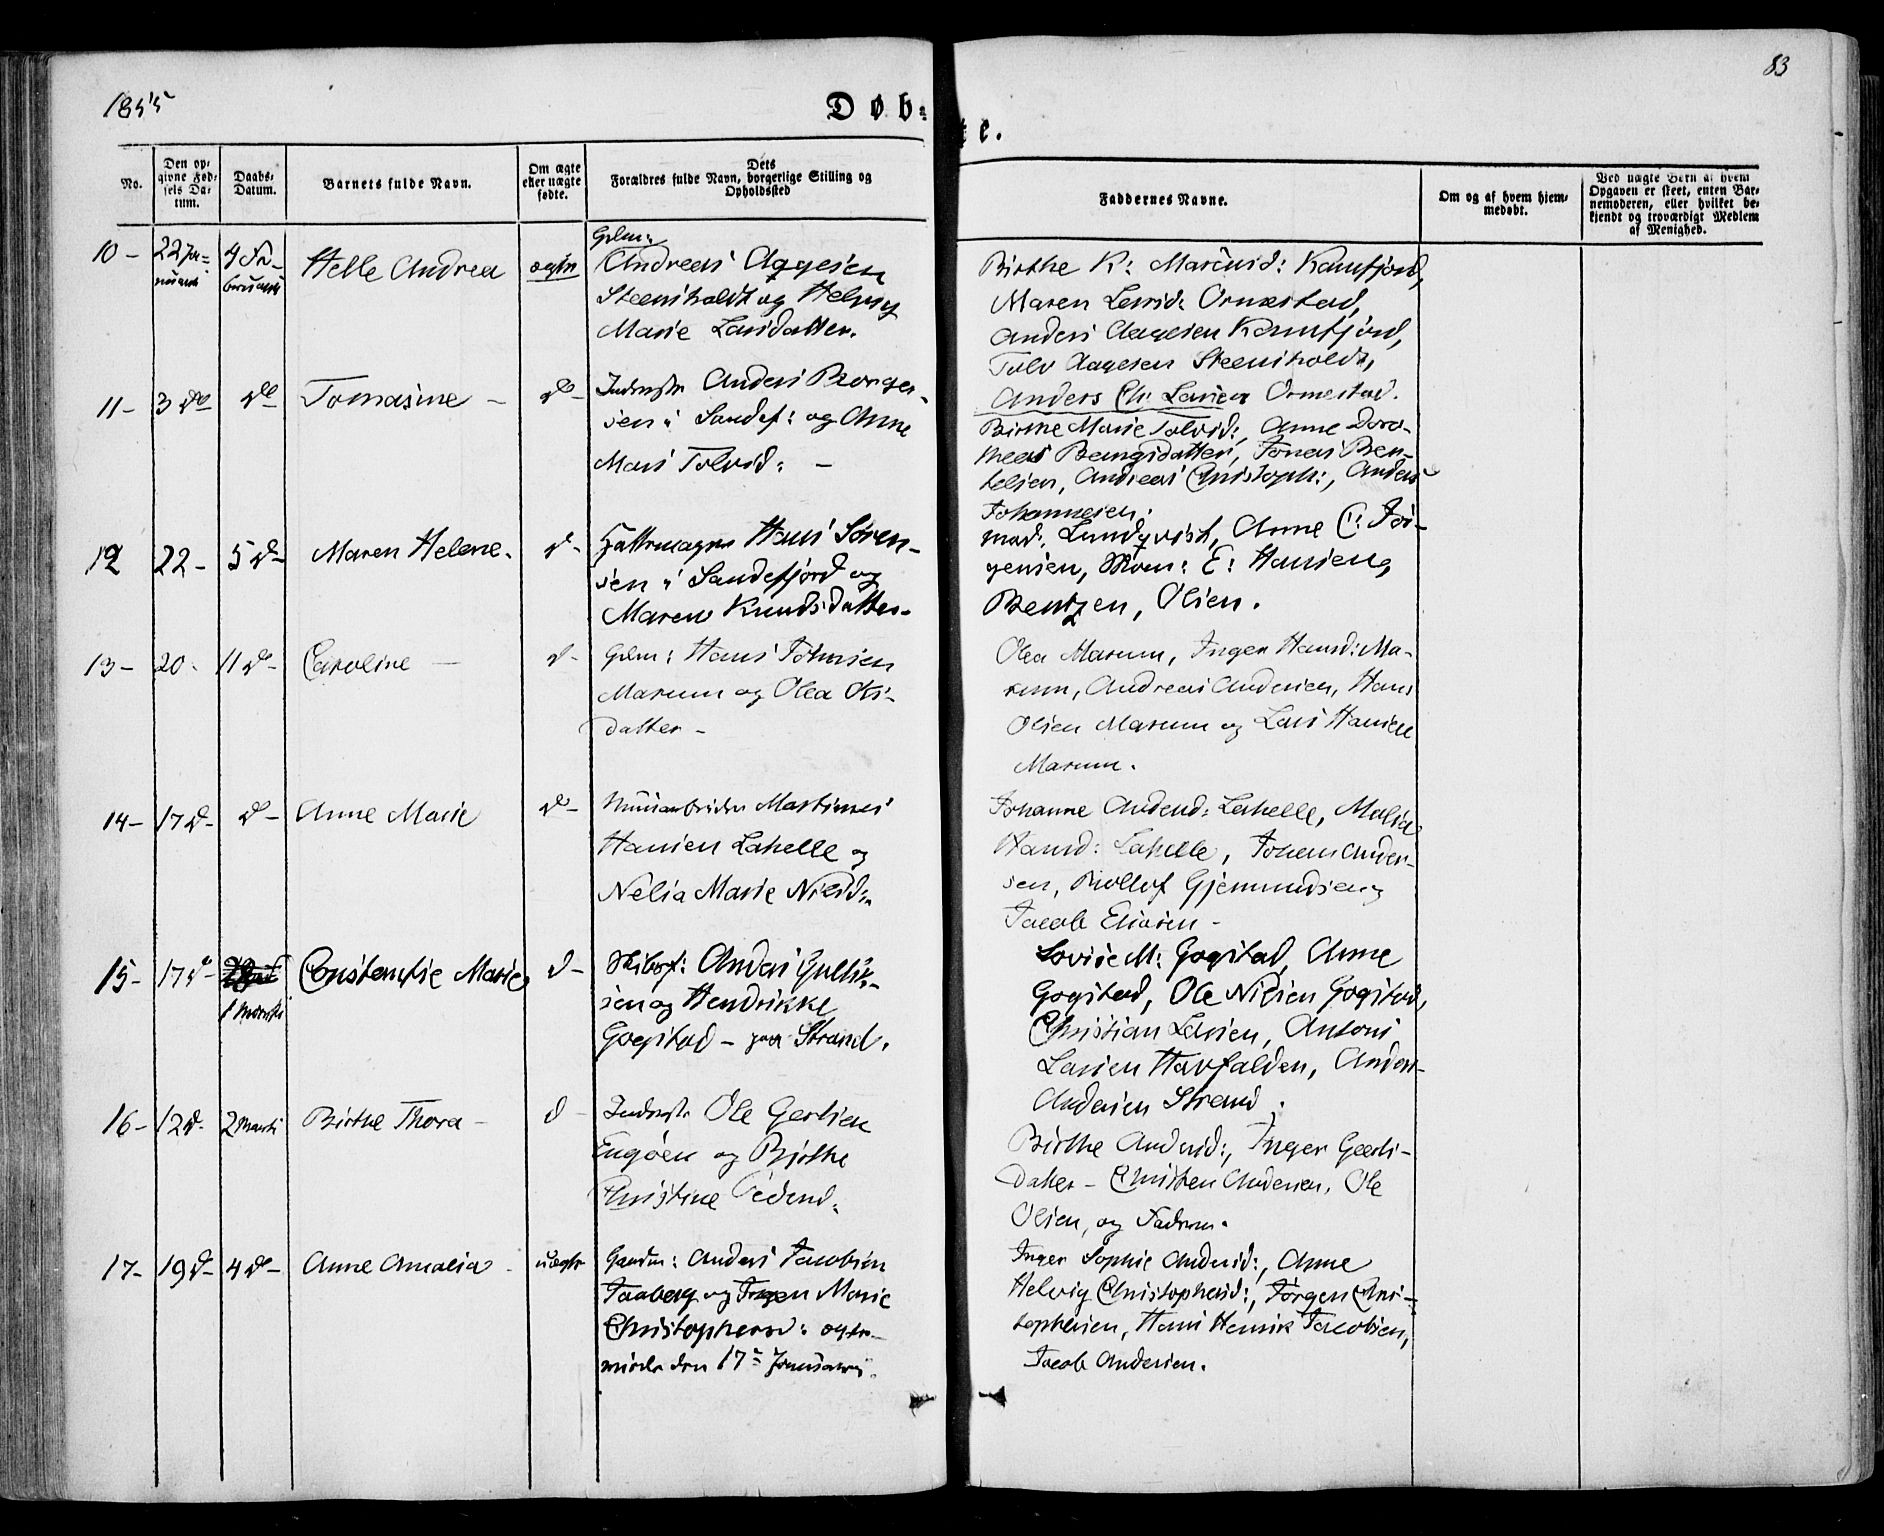 1855
Døb=
83
te.
No.
Den op=
givne Fød=
sels Da=
tum.
Daabs=
Datum.
Barnets fulde Navn.
Om ægte
eller uægte
fødte.
Dets
Forældres fulde Navn, borgerlige Stilling og
Opholdssted
Faddernes Navne.
Om og af hvem hjem=
medøbt.
Ved uægte Børn af hvem
Opgaven er skeet, enten Bar=
nemoderen, eller hvilket be=
kjendt og troværdigt Medlem
af Menighed.
10 - 22 Ja= 4 Fe= Helle Andrea ægte
nuari bruari
Gdm:
Andreas Aagesen
Steensholdt og Helvig
Marie Larsdatter.
Birthe K: Marcusd: Kamfjord,
Maren Larsd: Ormestad,
Anders Aagesen Kamfjord,
Tolv Aagesen Steensholdt,
Anders Ch: Larsen Ormestad.
11 - 3 do do Tomasine - do -
Inderste Anders Borger-
sen i Sandef: og Anne
Mars Tolvsd: -
Birthe Marie Tolvsd:, Anne Doro-
theas Bengsdatter, Jonas Ben-
telsen, Andreas Christoph:, Anders
Johannesen.
12 22 - 5 do - Maren Helene. do -
Hattemager Hans Søren-
sen i Sandefjord og
Maren Knudsdatter.
mad. Lundqvist, Anne C: Jør-
gensen, Mom: E: Hansen,
Bentzen, Olsen.
13 - 20 - 11 do - Caroline - do -
Gdm: Hans Johnsen
Marum og Olea Ols-
datter -
Olea Marum, Inger Hansd: Ma-
rum, Andreas Andersen, Hans
Olsen Marum og Lars Hansen
Marum.
14 - 17 do - do - Anne Marie do -
Martinus
Hansen Lahelle og
Nelia Marie Nielsd:
Johanne Andersd: Lahelle, Malia
Hansd: Lahelle, Johans Ander-
sen, Rollof Gjemundsen og
Jacob Eliasen -
15 - 17 do - Constantie Marie do -
1 Marts
Skibsf: Anders Gullik-
sen og Hendrikke
Gogstad - paa Strand.
Lovise M: Gogstad, Anne
Gogstad, Ole Nilsen Gogstad,
Christian Larsen, Antoni
Larsen Havfalden, Anders
Andersen Strand.
16 - 12 do - 2 Marts Birthe Thora - do -
Inderste Ole Gertsen
Engøen og Birthe
Christine Pedersd.
Birthe Andersd:, Inger Geerts-
datter - Christen Andersen, Ole
Olsen, og Faderen.
17 - 19 do - 4 do - Anne Amalia - uægte
Gaardm: Anders Jacobsen
Taaberg og Inger Marie
Christophersd: ægte-
viede den 17de Januari.
Inger Sophie Andersd:, Anne
Helvig Christophersd:, Jørgen Chris-
tophersen, Hans Henrik Jacobsen,
Jacob Andersen.